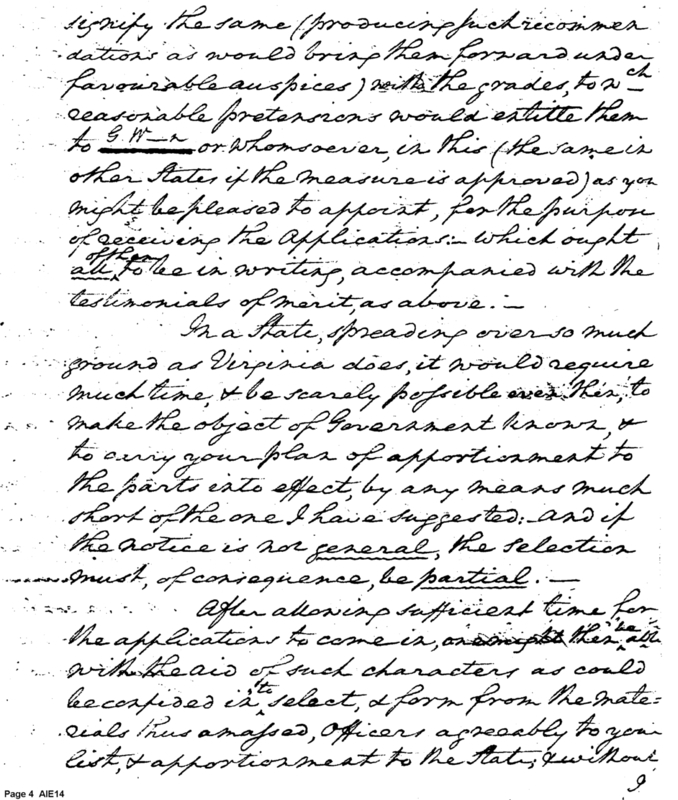 signify the same (producing such recommen
dations as would bring them forward under
favourable auspices) with the grades, to wch
reasonable pretensions would entitle them
to G. W—n or whomsoever, in this (the same in
other States if the measure is approved) as you
might be pleased to appoint, for the purpose
of receiving the Applications:— which ought
all of them to be in writing, accompanied with the
testimonials of merit, as above.—
In a State, spreading over so much
ground as Virginia does, it would require
much time, & be scarely possible even then, to
make the object of Government known, &
to carry your plan of apportionment to
the parts into effect, by any means much
short of the one I have suggested:— and if
the notice is not general, the selection
must, of consequence, be partial.—
After allowing sufficient time for
the applications to come in, one might then be able
with the aid of such characters as could
be confided in, to select, & form from the mate=
rials thus amassed, Officers agreeably to your
list, & apportionment to the State; & without
I
Page 4 AIE14